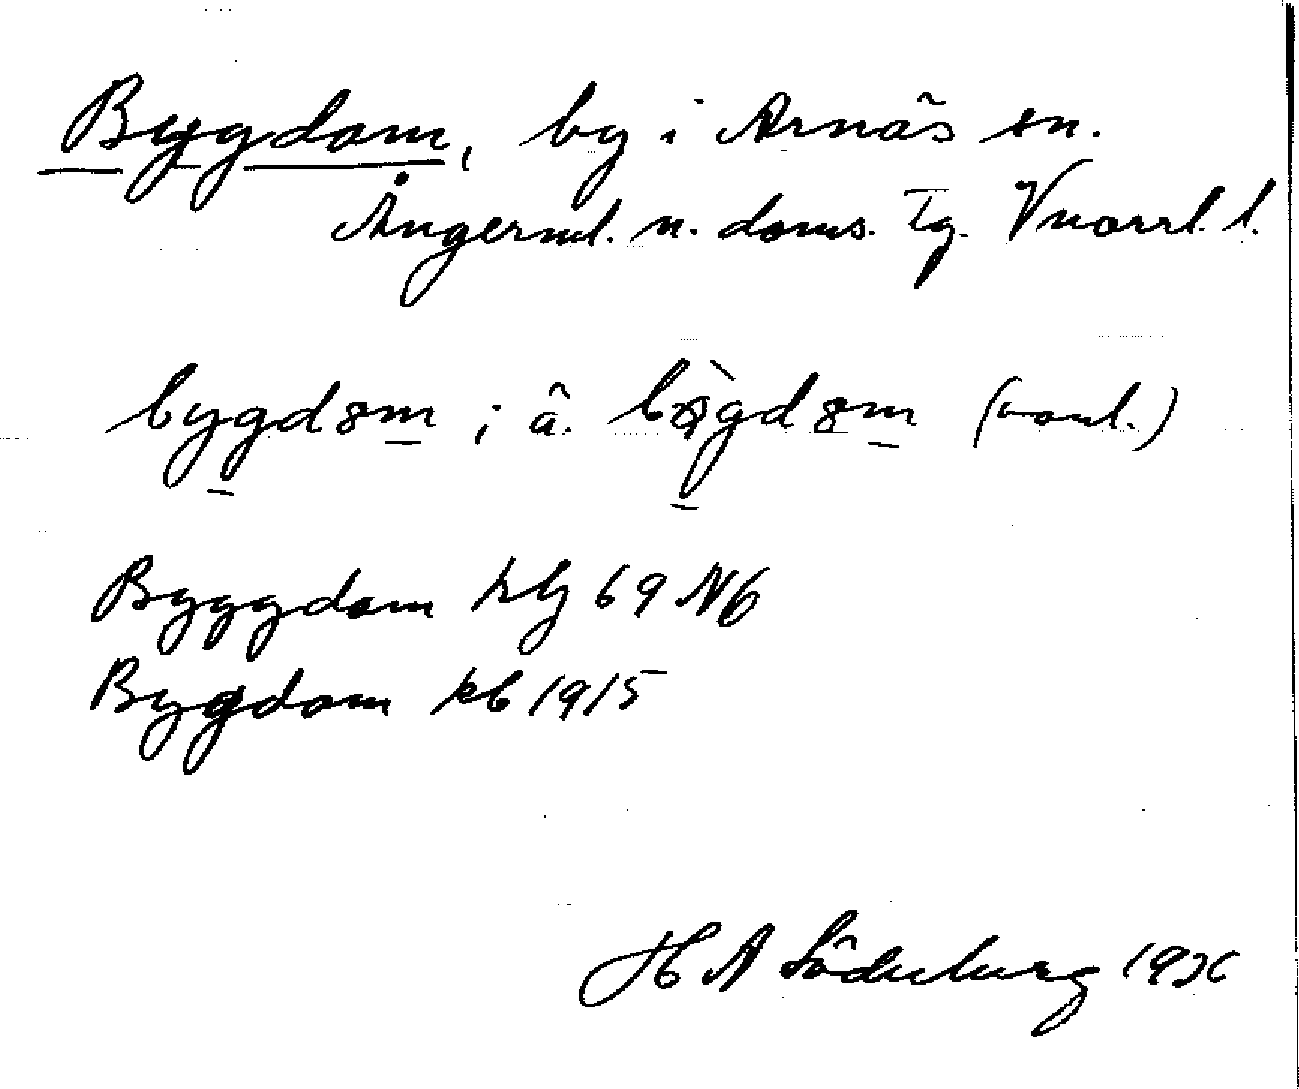 Bygdom, by i Arnäs sn.
Ångerml. n. doms. Tg. Vnorrl. l.
bygdom ; ä. bygdom (vanl.)
Byggdom hfl 69 Nb
Bygdom kb 1915
H A Söderberg 19